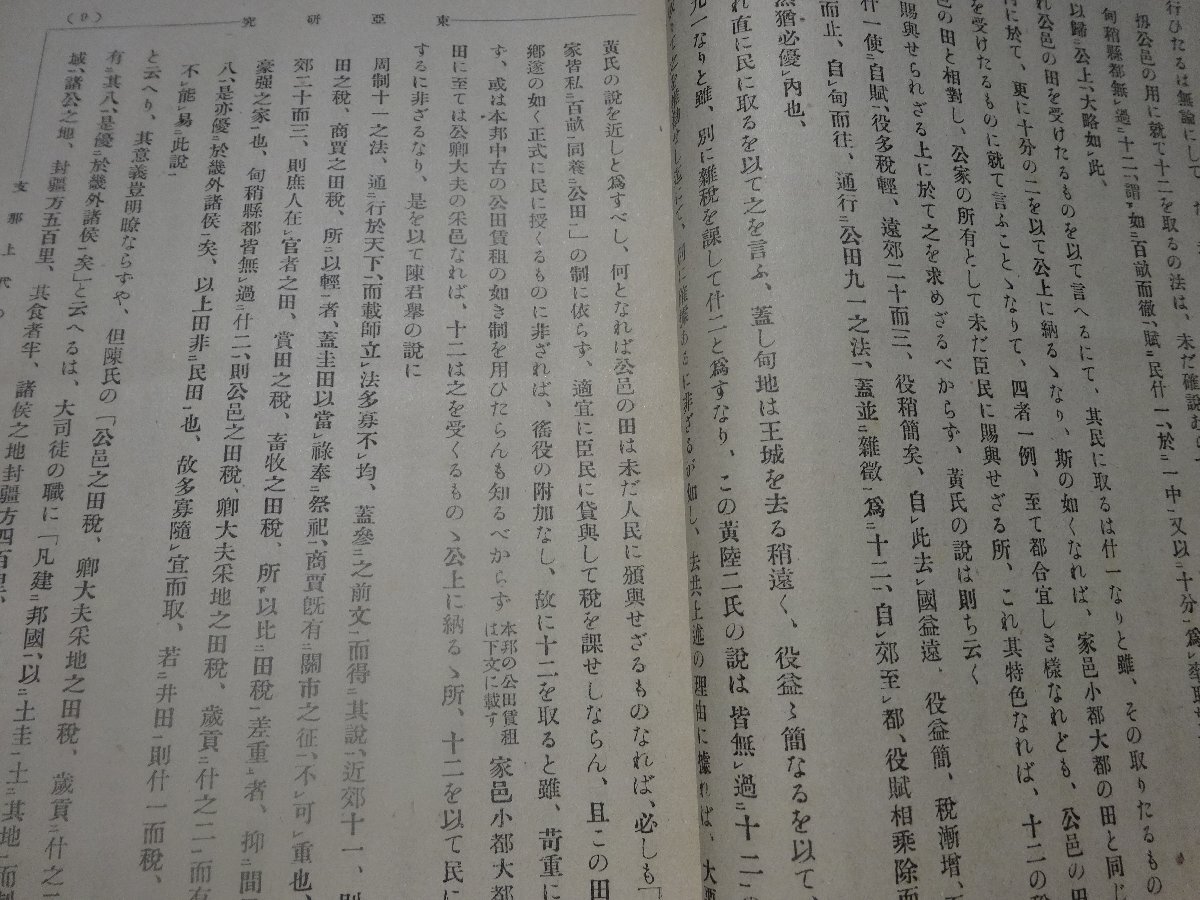 行ひたるは無論にして
扨公邑の用に就て十二を取るの法は、未だ確說
甸稍縣都無レ過二十二、謂下如二百畝而徹、賦二民什一、於二一中一又以二十分一爲レ率
以歸中公上、大略如レ此、
れ公邑の田を受けたるものを以て言へるにて、其民に取るは什一なりと雖、その取りたるもの
に於て、更に十分の二を以て公上に納るゝなり、斯の如くなれば、家邑小都大都の田と同じ
を受けたるものに就て言ふことゝなりて、四者一例、至て都合宜しき樣なれども、公邑の田
邑の田と相對し、公家の所有として未だ臣民に賜與せざる所、これ其特色なれば、十二の稅
賜與せられざる上に於て之を求めざるべからず、黃氏の說は則ち云く
什一使二自賦一、役多稅輕、遠郊二十而三、役稍簡矣、自レ此去レ國益遠、役益簡、稅漸增、
而止、自レ甸而往、通二行公田九一之法一、蓋並二雜徵一爲二十二一、自レ郊至レ都、役賦相乘除而
猶必優レ內也、
れ直に民に取るを以て之を言ふ、蓋し甸地は王城を去る稍遠く、役益〻簡なるを以て、
九一なりと雖、別に雜稅を課して什二と爲すなり、この黃陸二氏の說は皆無レ過二十二一の
如し、去共上述の理由に據れば、大
黃氏の說を近しと爲すべし、何となれば公邑の田は未だ人民に頒與せざるものなれば、必しも「
家皆私二百畝一同養二公田一」の制に依らず、適宜に臣民に貸與して稅を課せしならん、且この田
鄕遂の如く正式に民に授くるものに非ざれば、徭役の附加なし、故に十二を取ると雖、苛重に
す、或は本邦中古の公田賃租の如き制を用ひたらんも知るべからず 本邦の公田賃租は下文に載す 家邑小都大都
田に至ては公卿大夫の采邑なれば、十二は之を受くるものゝ公上に納るゝ所、十二を以て民に
するに非ざるなり、是を以て陳君擧の說に
周制十一之法、通二行於天下一、而載師立レ法多寡不レ均、蓋參二之前文一而得二其說一、近郊十一、則
田之稅、商賈之田稅、所二以輕一者、蓋圭田以當レ祿奉二祭祀一、商賈旣有二關市之征一、不レ可レ重也、
郊二十而三、則庶人在レ官者之田、賞田之稅、畜牧之田稅、所下以比二田稅一差重上者、抑二間
豪强之家一也、甸稍縣都皆無レ過二什二一、則公邑之田稅、卿大夫采地之田稅、歲貢二什之二一而有二
八一、是亦優二於畿外諸侯一矣、以上田非二民田一也、故多寡隨レ宜而取、若二井田一則什一而稅、
不レ能レ易二此說一
と云へり、其意義豈明瞭ならずや、但陳氏の「公邑之田稅、卿大夫采地之田稅、歲貢二什之
有二其八一、是優二於畿外諸侯一矣」と云へるは、大司徒の職に「凡建二邦國一、以二土圭一土二其地一而制
域一、諸公之地、封疆方五百里、其食者半、諸侯之地封疆方四百里、
支那上代の
東亞研究
(9)